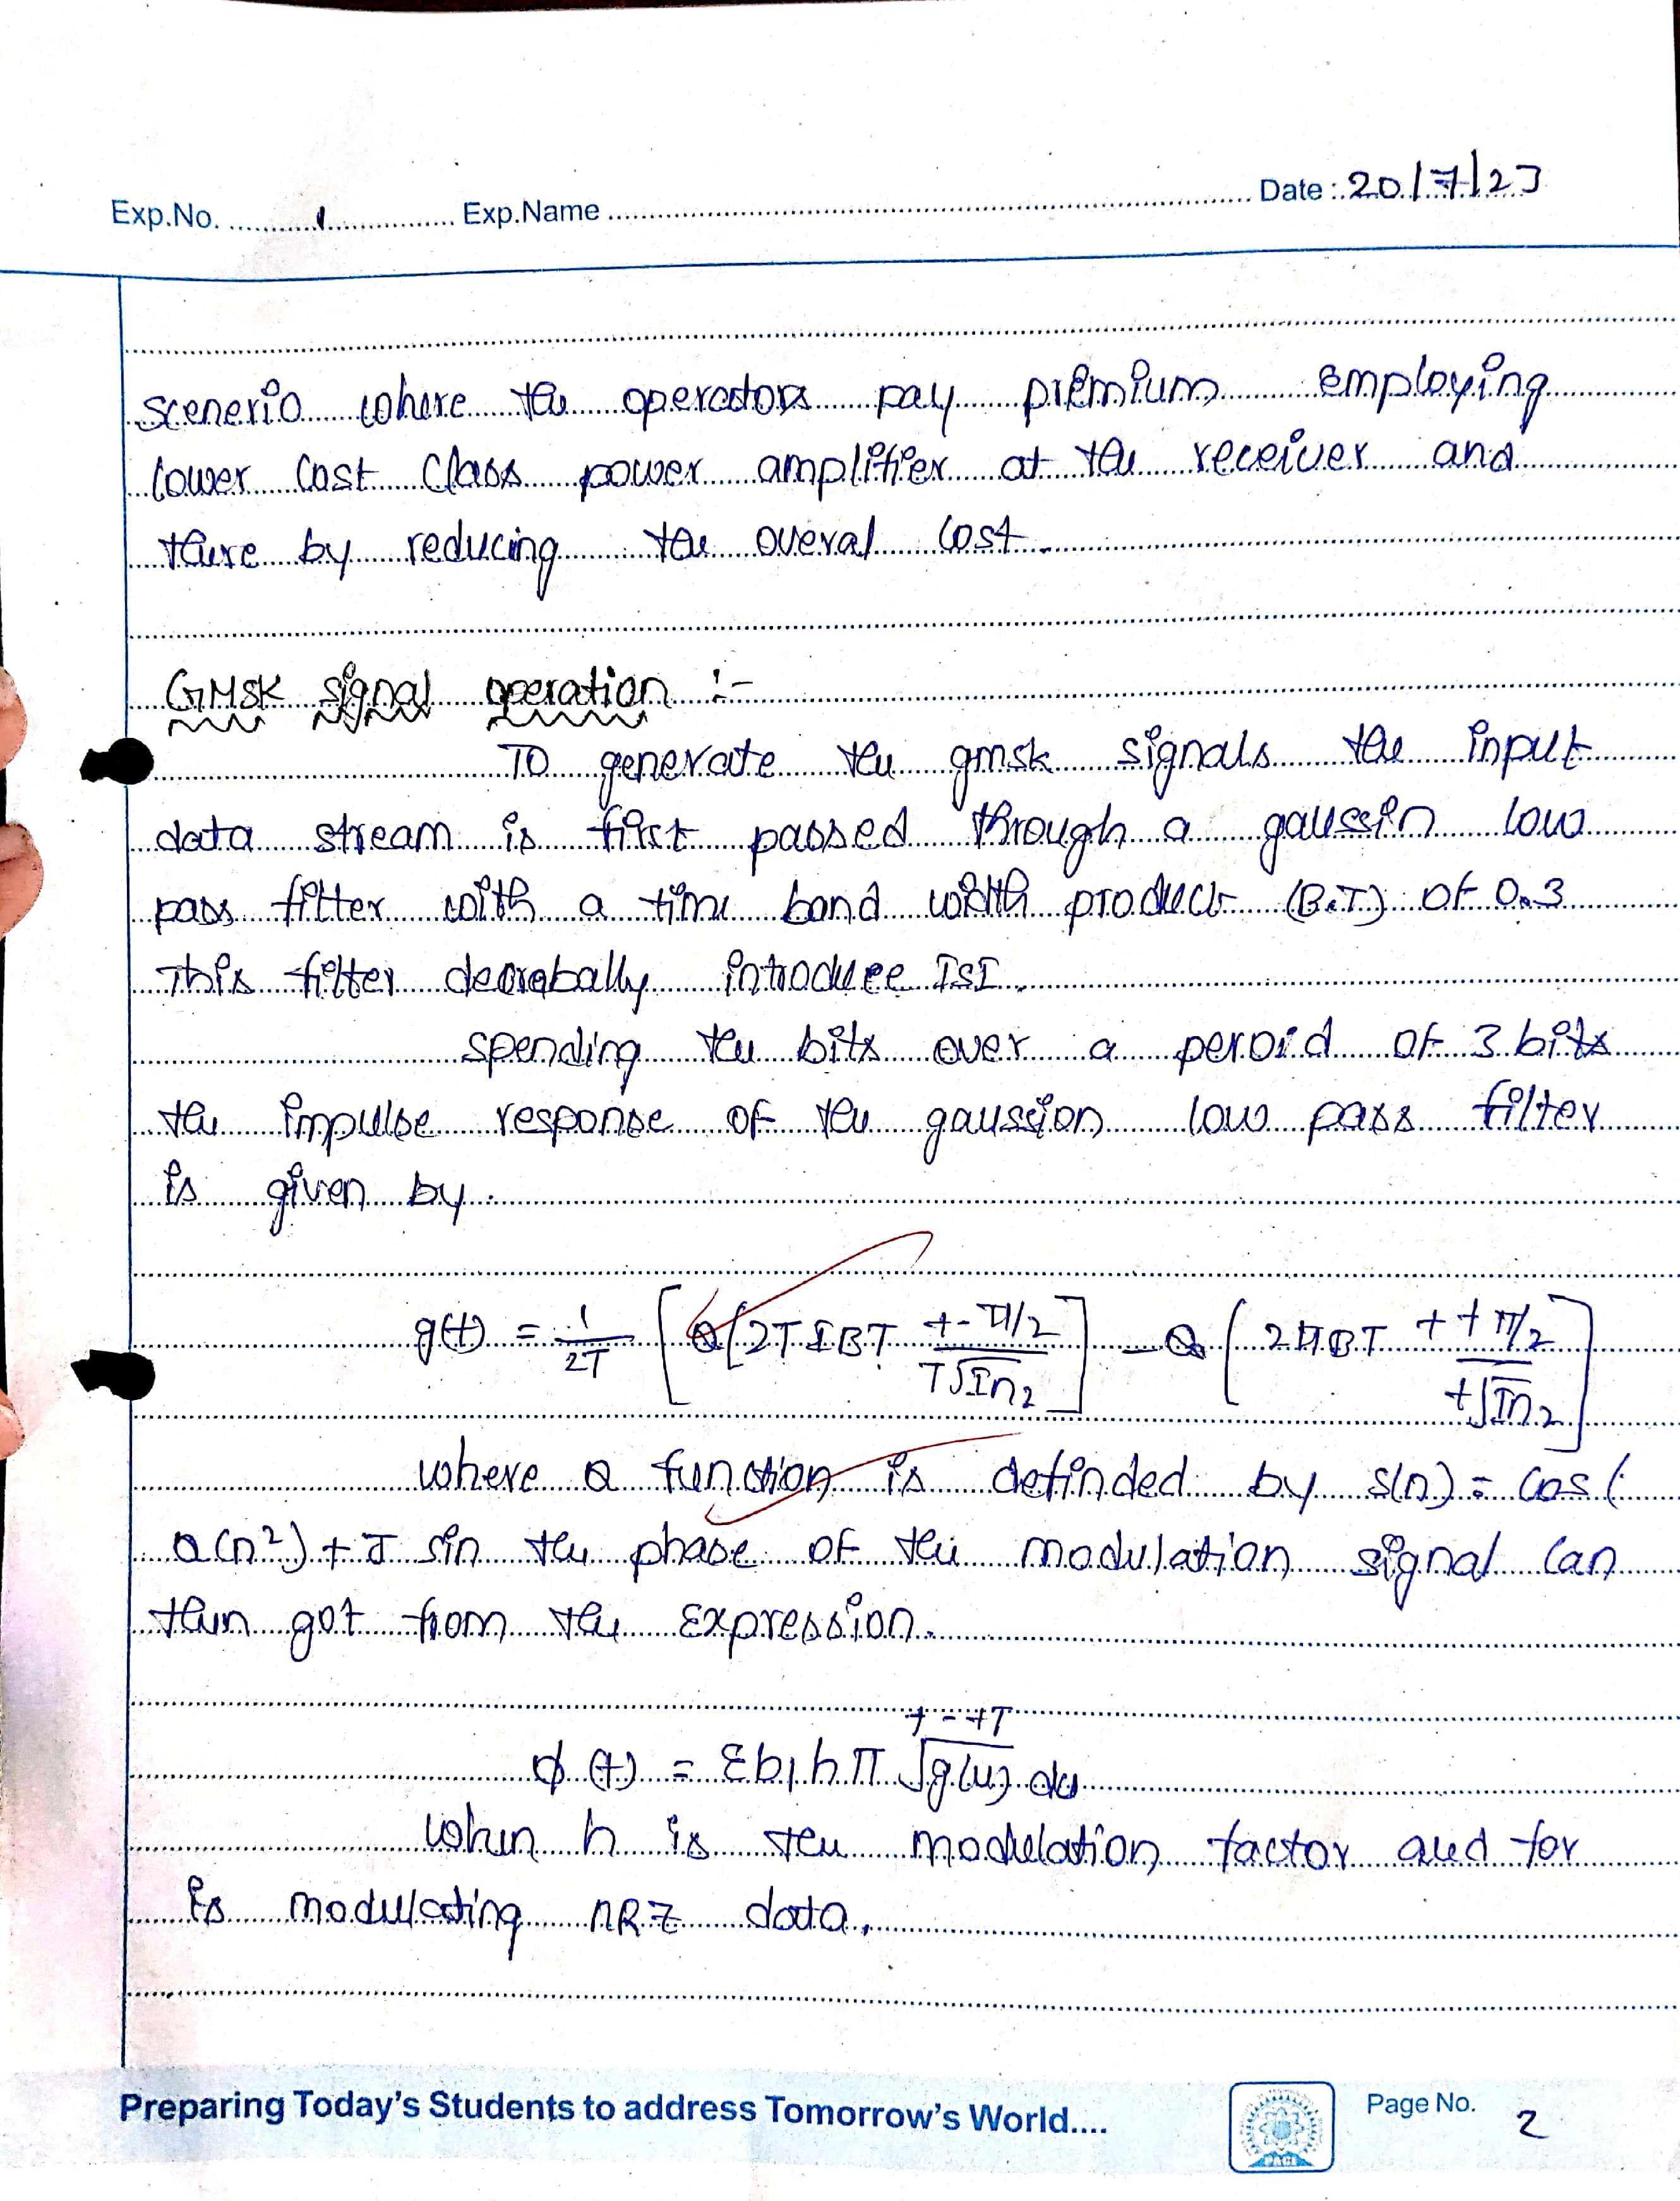 Exp.No. 1 Exp.Name Date : 20/7/23
scenerio where the operators pay premium employing
lower cost class power amplifier at the receiver and
there by reducing the overal cost.
GMSK signal operation :-
TO generate the gmsk signals the input
data stream is first passed through a gaussin low
pass filter with a time band width product (B.T) of 0.3
This filter introduce ISI.
spending the bits over a peroid of 3 bits
the impulse response of the gaussion low pass filter
is given by.
g(t) = 1/2T [Q(2TIBT t-π/2 / T√In2] - Q(2πBT t+π/2 / t√In2]
where Q function is definded by s(n) = cos(
Q(n²)+J sin the phase of the modulation signal can
then got from the Expression.
t-+T
φ(t) = Σb1hπ ∫g(u) du
when h is the modulation factor and for
is modulating nRZ data.
Preparing Today's Students to address Tomorrow's World....
PACE
Page No. 2